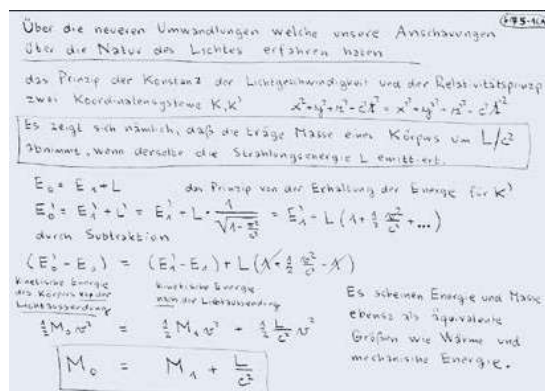 475-1(A)
Über die neueren Umwandlungen welche unsere Anschauungen
über die Natur des Lichtes erfahren haben
das Prinzip der Konstanz der Lichtgeschwindigkeit und der Relativitätsprinzip
zwei Koordinatensysteme K, K' x²+y²+z²-c²t² = x'²+y'²+z'²-c²t'²
Es zeigt sich nämlich, daß die träge Masse eines Körpers um L/c²
abnimmt, wenn derselbe die Strahlungsenergie L emittiert.
E₀ = E₁ + L das Prinzip von der Erhaltung der Energie für K'
E₀' = E₁' + L' = E₁' + L · 1/√(1-v²/c²) = E₁' + L (1 + 1/2 v²/c² + ...)
durch Subtraktion
(E₀' - E₀) = (E₁' - E₁) + L (1 + 1/2 v²/c² - 1)
kinetische Energie des Körpers vor der Lichtaussendung
kinetische Energie nach der Lichtaussendung
1/2 M₀ v² = 1/2 M₁ v² + 1/2 L/c² v²
M₀ = M₁ + L/c²
Es scheinen Energie und Masse
ebenso als äquivalente
Größen wie Wärme und
mechanische Energie.